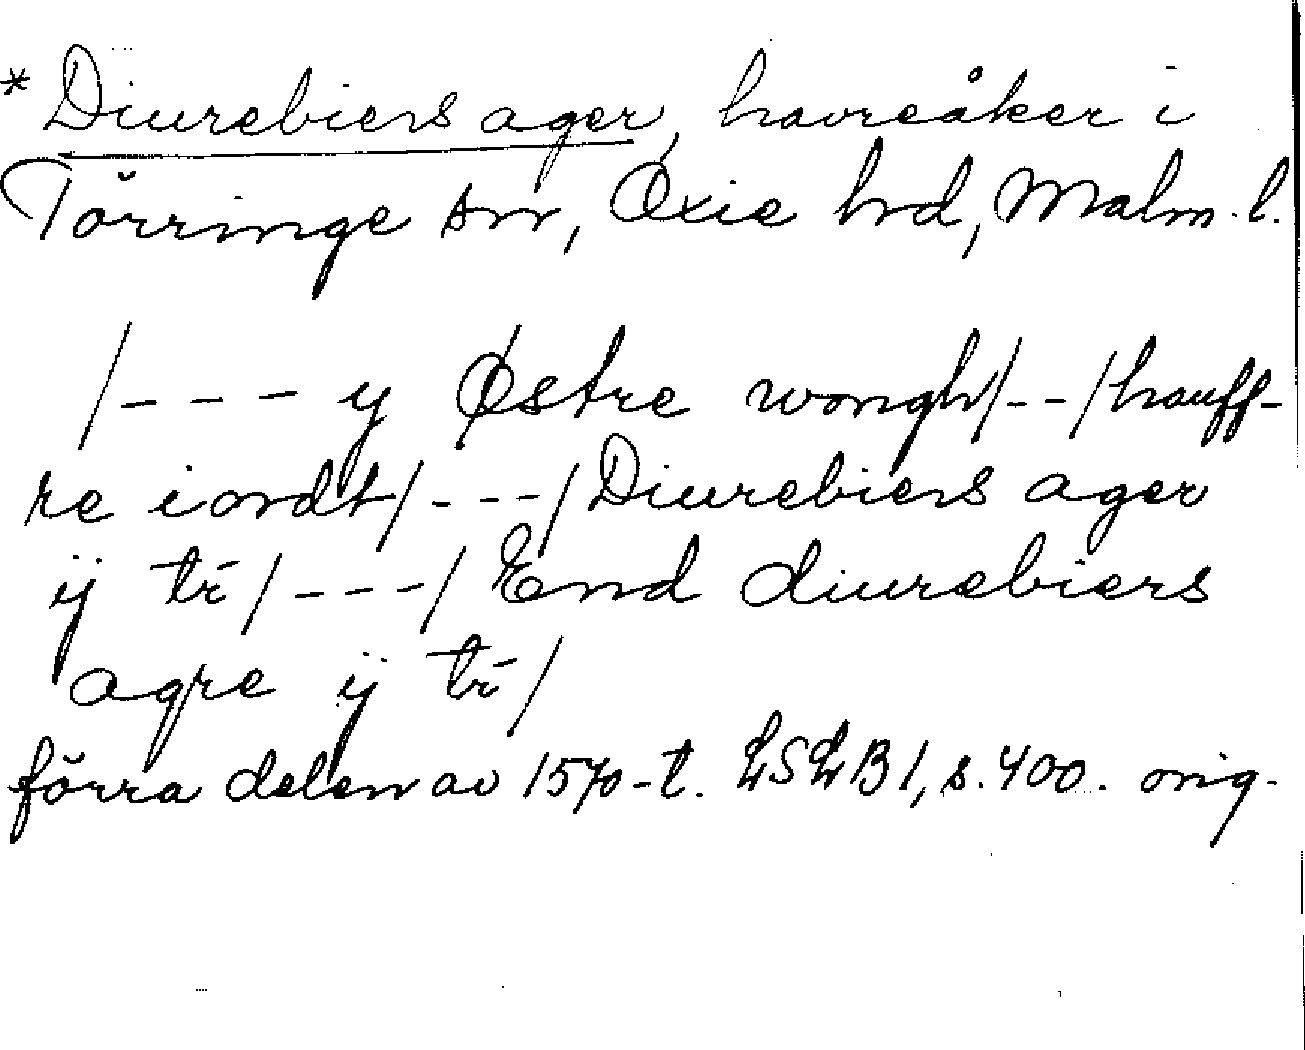 * Diurebiers ager, havreåker i
Törringe sn, Oxie hd, Malm. l.
/--- y Østre wongh/--/hauff-
re iordt/---/Diurebiers ager
ÿ tr̄/---/End diurebiers
agre ÿ tr̄/
förra delen av 1570-t. LSLB 1, s. 400. orig.